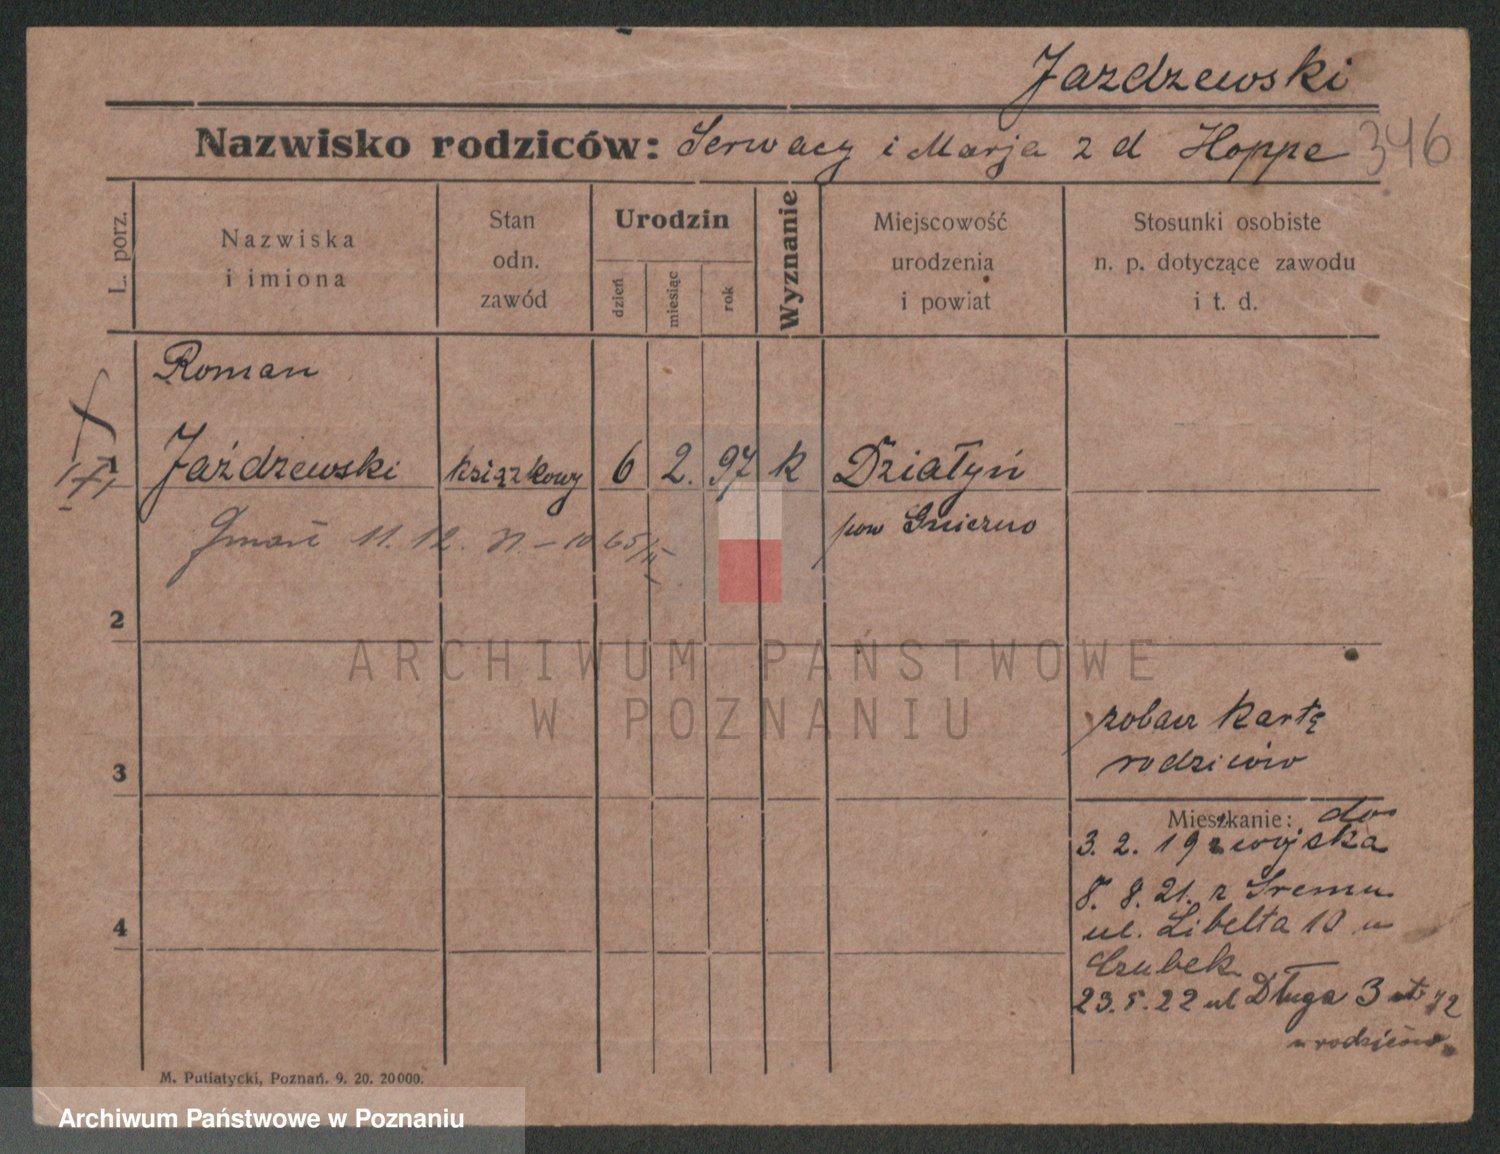 Jazdzewski
Nazwisko rodziców: Serwacy i Marja z d Hoppe 346
L. porz.
Nazwiska
i imiona
Stan
odn.
zawód
Urodzin
dzień
miesiąc
rok
Wyznanie
Miejscowość
urodzenia
i powiat
Stosunki osobiste
n. p. dotyczące zawodu
i t. d.
Roman
1 Jaździewski książkowy 6 2. 97 k Działyń
pow Gniezno
Zmarł 11. 12. 31
2
ARCHIWUM PAŃSTWOWE
W POZNANIU
zobacz kartę
rodziców
3
Mieszkanie: do
3. 2. 19 z wojska
8. 8. 21. z Sremu
ul. Libelta 10 u
4
Czubek
23. 5. 22 ul Długa 3
u rodziców
M. Putiatycki, Poznań. 9. 20. 20000.
Archiwum Państwowe w Poznaniu